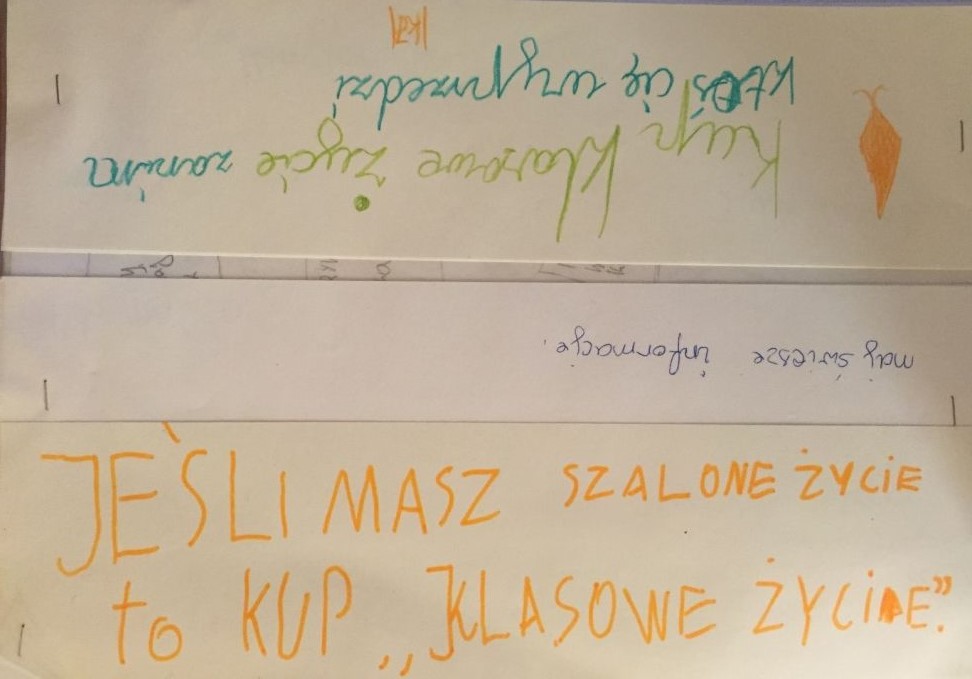 Kup klasowe życie zanim
ktoś cię wyprzedzi
najświesze informacje.
JEŚLI MASZ SZALONE ŻYCIE
to KUP „KLASOWE ŻYCIE”.